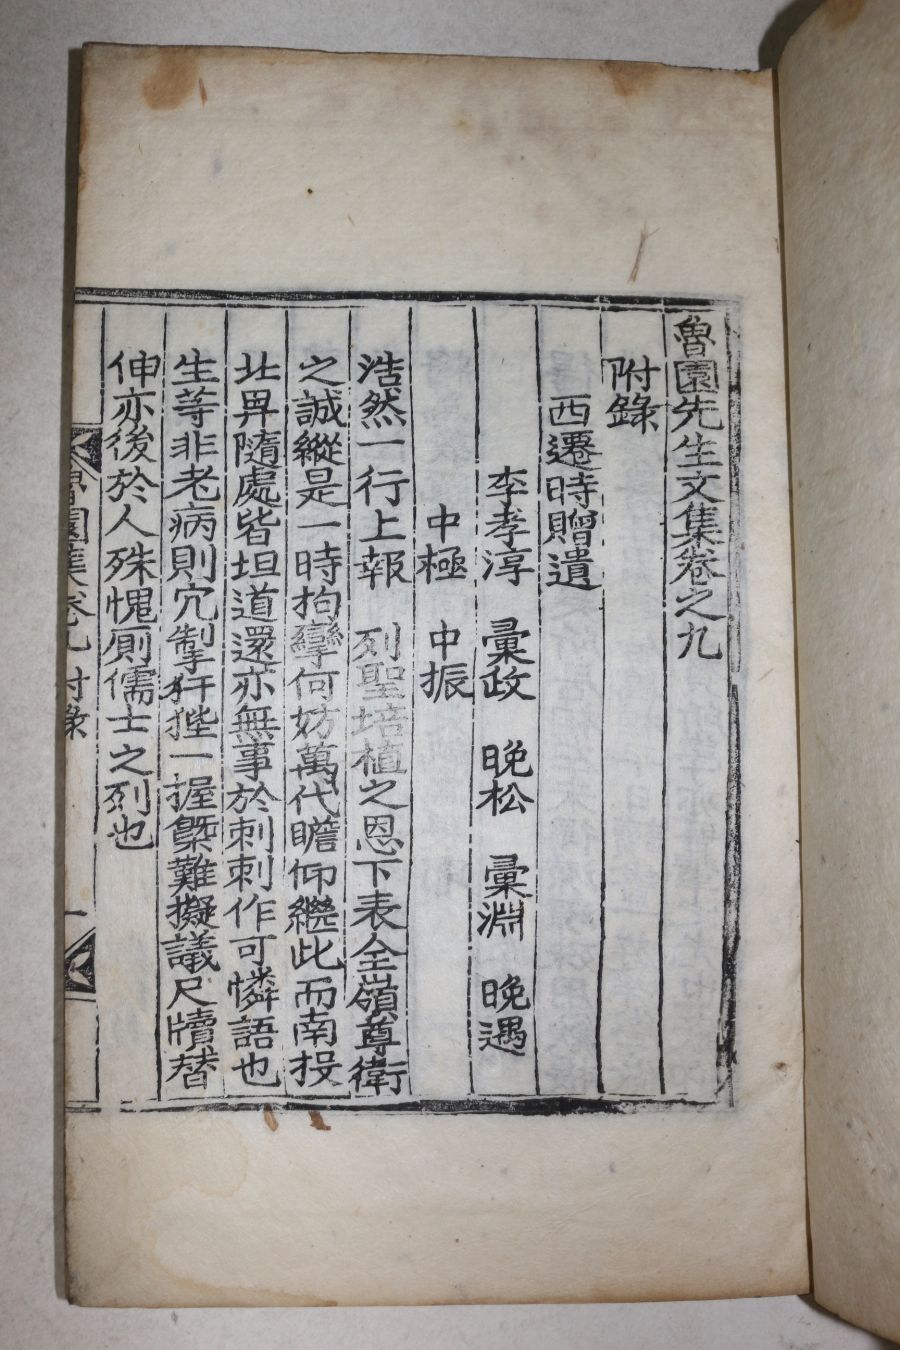 魯園先生文集卷之九
附錄
西遷時贈遺
李孝淳 彙政 晚松 彙淵 晚遇
中極 中振
浩然一行上報 列聖培植之恩下表全嶺尊衛
之誠縱是一時拘攣何妨萬代瞻仰繼此而南投
北畀隨處皆坦道還亦無事於刺刺作可憐語也
生等非老病則宂掣犴狴一握槩難擬議尺牘替
伸亦後於人殊愧厠儒士之列也
魯園集卷九 附錄 一